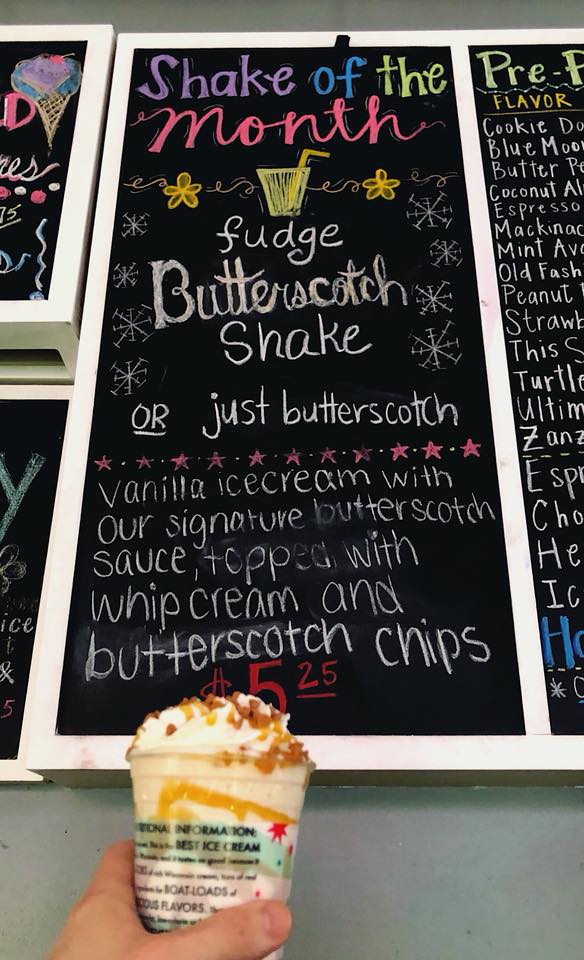 Shake of the
Month
fudge
Butterscotch
Shake
OR just butterscotch
vanilla icecream with
our signature butterscotch
sauce, topped with
whip cream and
butterscotch chips
$5.25
Pre-
FLAVOR
Cookie
Blue Moo
Butter
Coconut
Espresso
Mackinac
Mint
Old Fash
Peanut
Strawb
This
Turtle
Ultim
Zanz
Esp
Cho
He
Ic
INFORMATION:
BEST ICE CREAM
of rich Wisconsin cream, tons of real
BOAT-LOADS of
FLAVORS.
ice
&